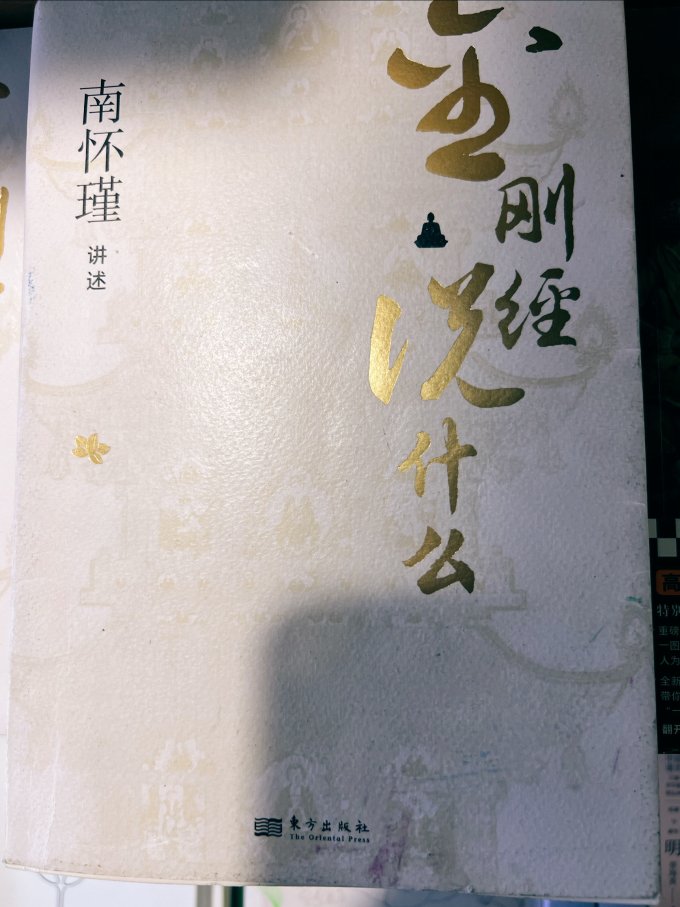 金
刚
经
说
什
么
南怀瑾
讲述
東方出版社
The Oriental Press
特别
重磅
一图
人为
全新
带你
"一
翻开
明